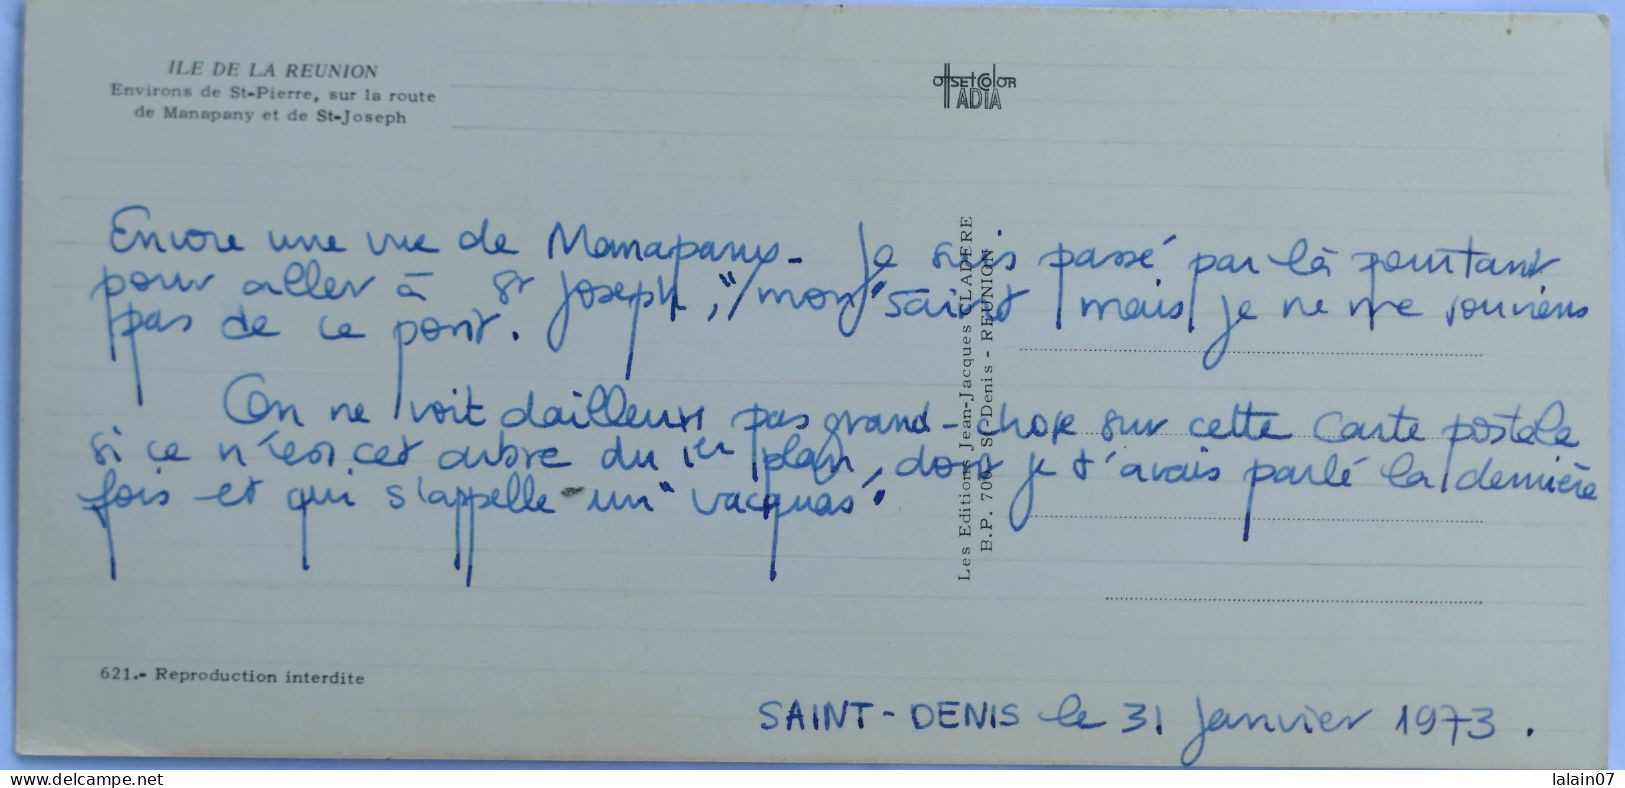 ILE DE LA REUNION
Environs de St-Pierre, sur la route
de Manapany et de St-Joseph
offsetcolor
ADIA
Encore une vue de Manapany - Je suis passé par là pourtant
pour aller à St Joseph, "mon" saint, mais je ne me souviens
pas de ce pont.
On ne voit d'ailleurs pas grand-chose sur cette carte postale
si ce n'est cet arbre du 1er plan, dont je t'avais parlé la dernière
fois et qui s'appelle un "vacquas".
Les Editions Jean-Jacques CLADERE
B.P. 700 St-Denis - REUNION
621.- Reproduction interdite
SAINT-DENIS le 31 janvier 1973.
delcampe.net
lalain07